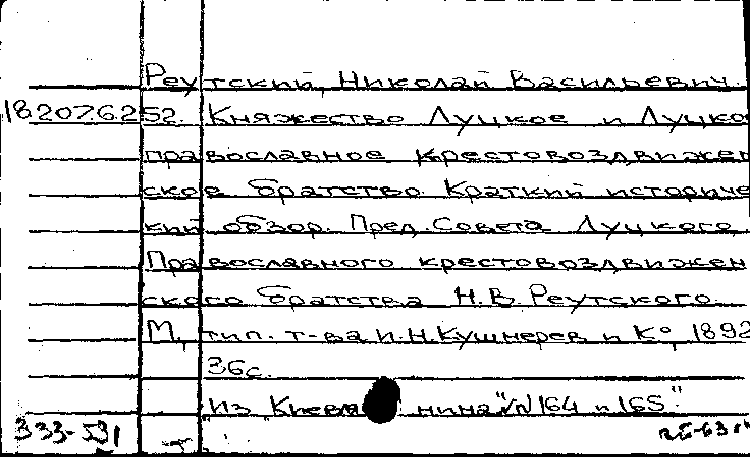 Реутский, Николай Васильевич.
18207.6252. Княжество Луцкое и Луцко
православное крестовоздвижен
ское братство. Краткий историче
кий обзор. Пред. Совета Луцкого
Православного крестовоздвижен
ского братства Н.В. Реутского.
М, тип. т-ва И.Н. Кушнерев и К°, 1892
36с.
"Из "Киевля нина" № 164 и 165."
333-531